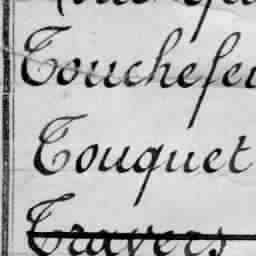 Touchefeu
Touquet
Travers